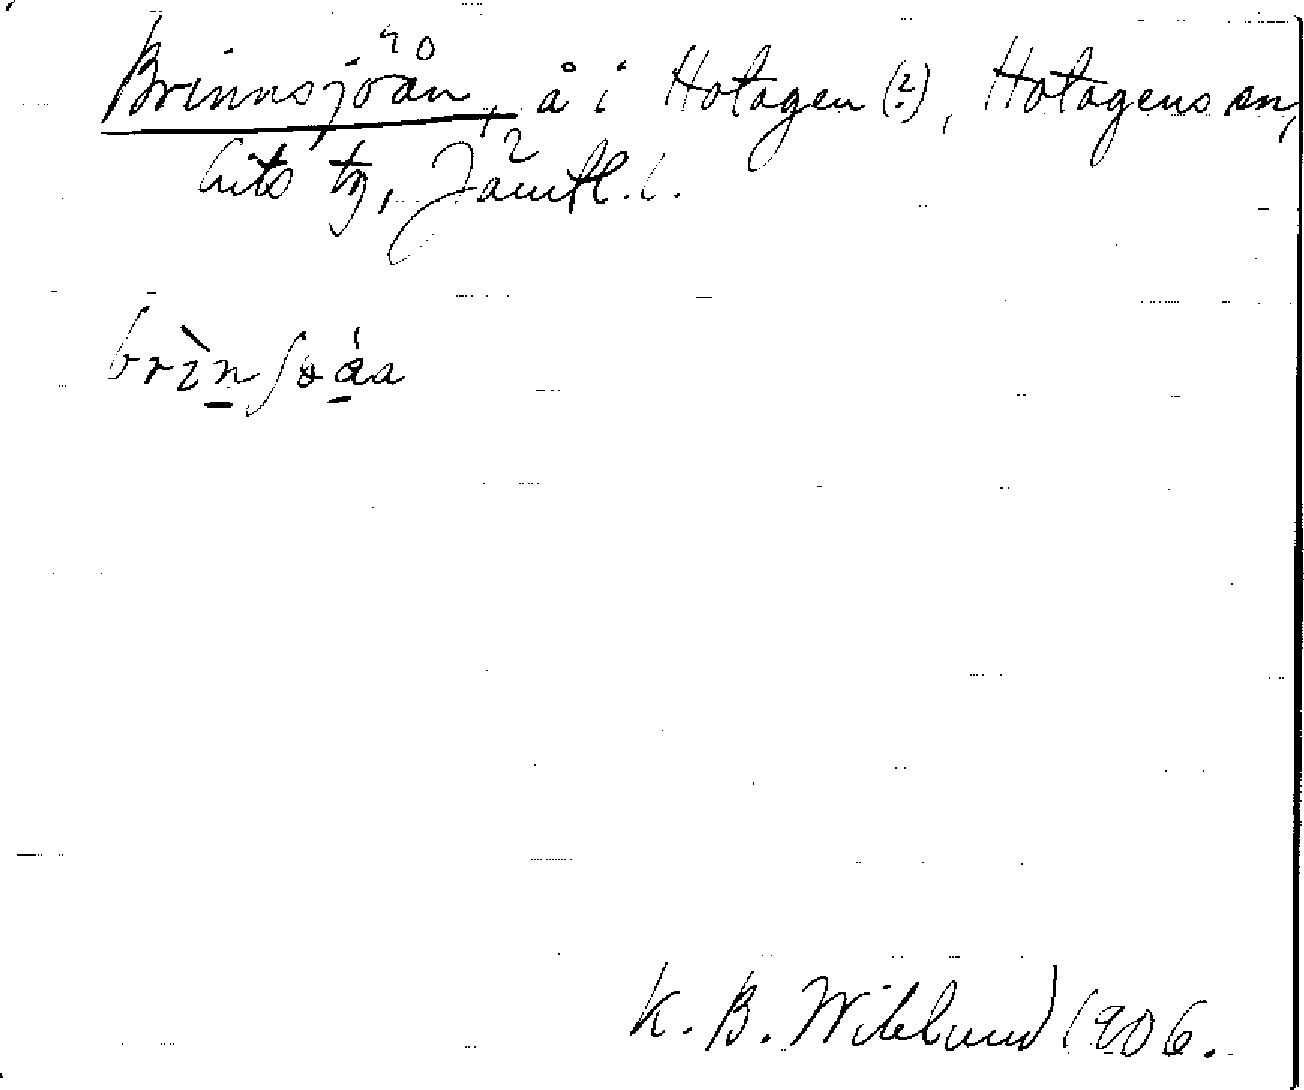 Brinnsjöån, å i Hotagen (?), Hotagens sn,
Lits tg, Jämtl. l.
K. B. Wiklund 1906.